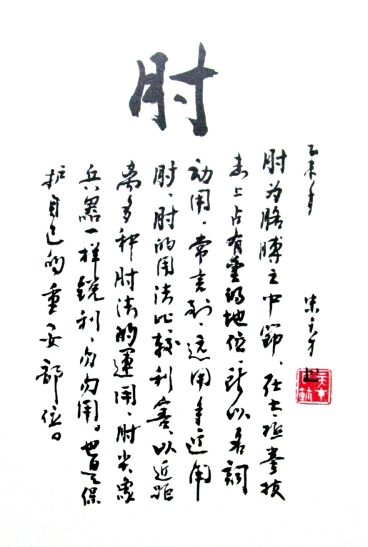 肘
乙未年
肘为胳膊之中節、在太极拳技
击上占有重的地位、所以名詞
动用。常言到、远用手近用
肘、肘的用法比較利害、以近距
离多种肘法的運用、肘尖象
兵器一样銳利、勿勿用。也是保
护自己的重要部位。